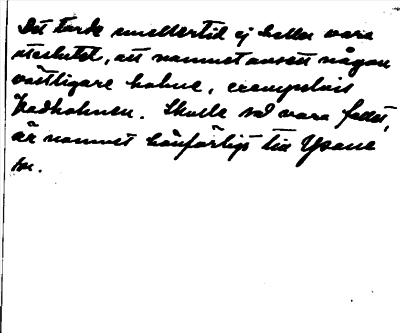 Det torde emellertid ej heller vara
uteslutet, att namnet avsett någon
västligare holme, exempelvis
Padholmen. Skulle så vara fallet,
är namnet hänförligt till Ysane
sn.